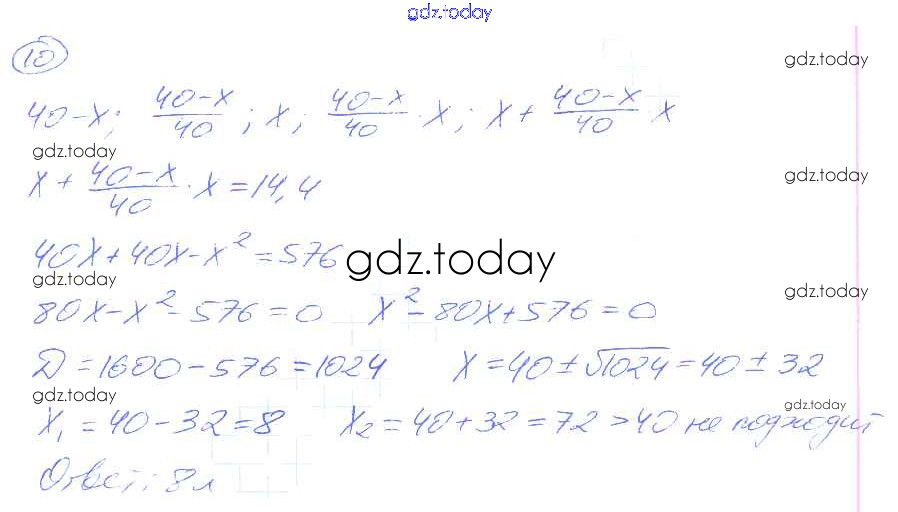 gdz.today
10
gdz.today
40-x; (40-x)/40; x; (40-x)/40 · x; x + (40-x)/40 · x
gdz.today
x + (40-x)/40 · x = 14,4
gdz.today
40x + 40x - x² = 576
gdz.today
gdz.today
80x - x² - 576 = 0 x² - 80x + 576 = 0
gdz.today
D = 1600 - 576 = 1024 x = 40 ± √1024 = 40 ± 32
gdz.today
gdz.today
x₁ = 40 - 32 = 8 x₂ = 40 + 32 = 72 > 40 не подходит
Ответ: 8 л